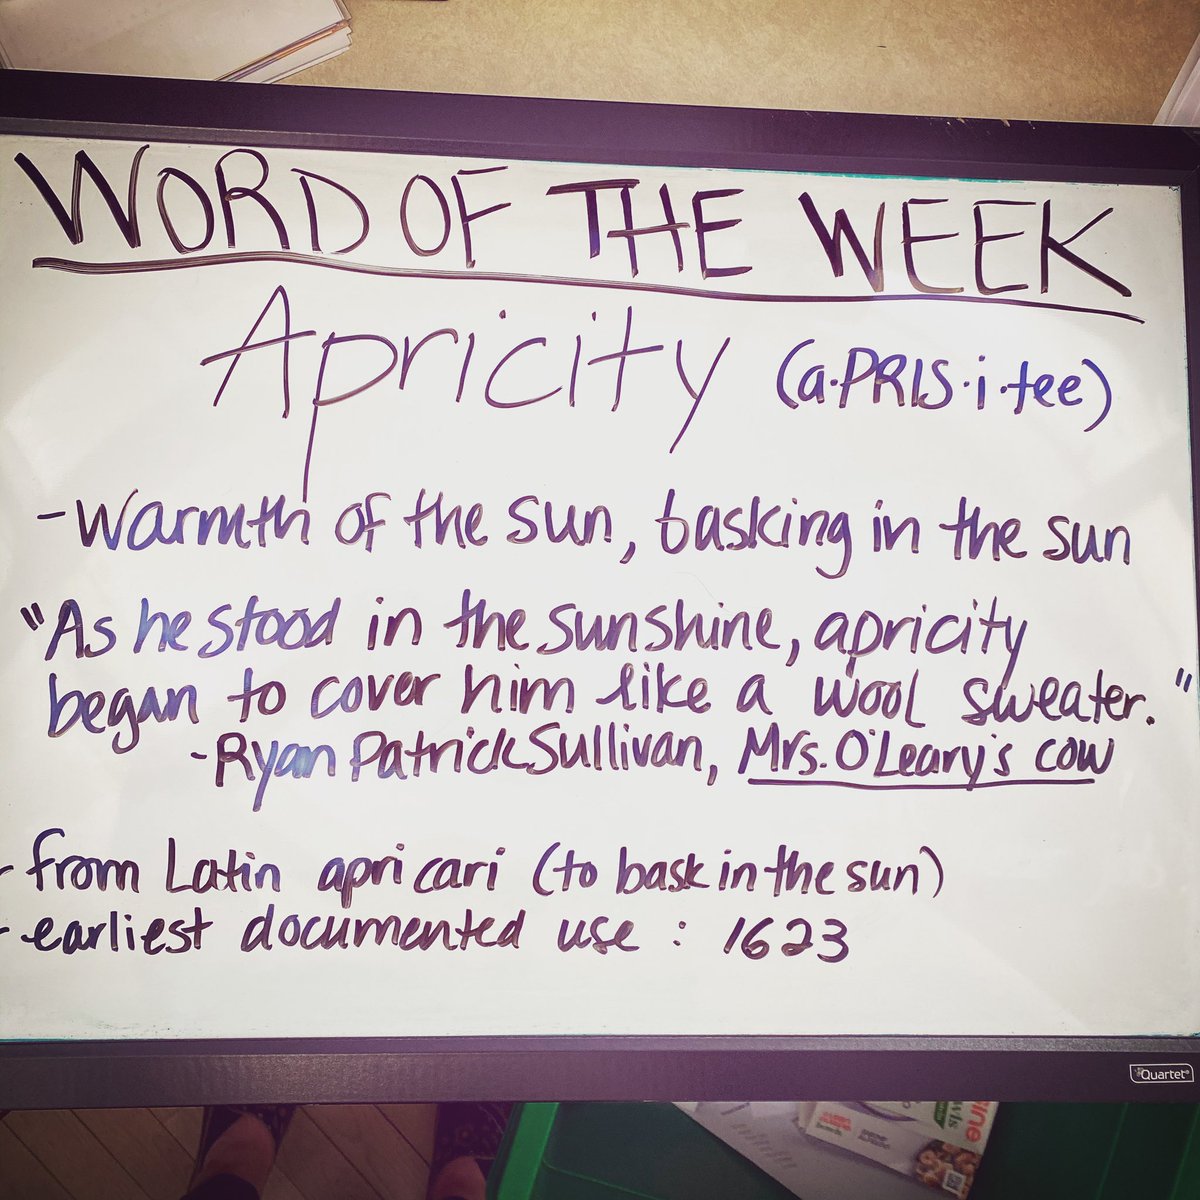 WORD OF THE WEEK
Apricity (a·PRIS·i·tee)
- Warmth of the sun, basking in the sun
"As he stood in the sunshine, apricity
began to cover him like a wool sweater."
- Ryan Patrick Sullivan, Mrs. O'Leary's cow
- from Latin apricari (to bask in the sun)
- earliest documented use : 1623
Quartet